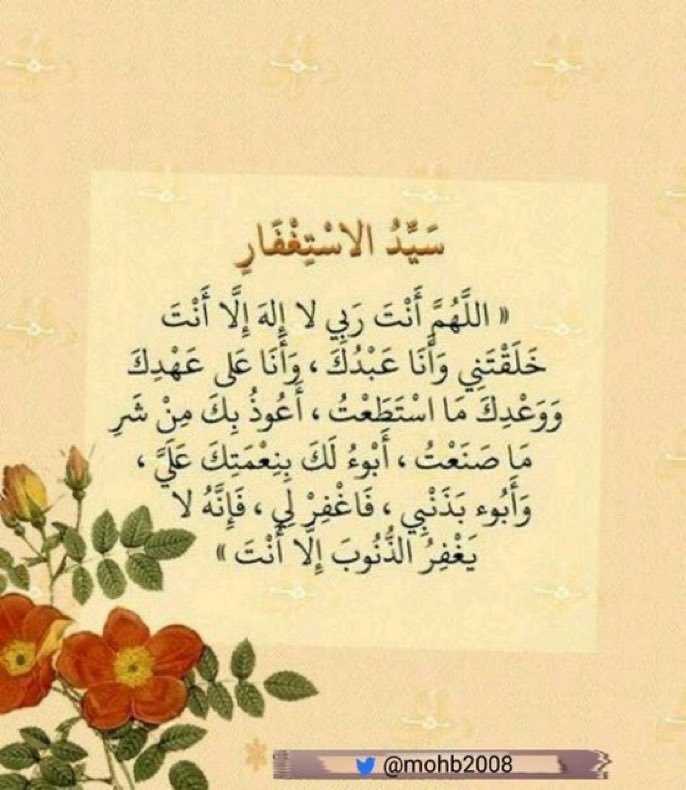 سَيِّدُ الاسْتِغْفَارِ
« اللَّهُمَّ أَنْتَ رَبِي لا إِلهَ إِلَّا أَنْتَ
خَلَقْتَنِي وَأَنَا عَبْدُكَ ، وَأَنَا عَلى عَهْدِكَ
وَوَعْدِكَ مَا اسْتَطَعْتُ ، أَعُوذُ بِكَ مِنْ شَرِ
مَا صَنَعْتُ ، أَبْوءُ لَكَ بِنِعْمَتِكَ عَلَيَّ ،
وَأَبُوء بَذَنْبِي ، فَاغْفِرْ لِي ، فَإِنَّهُ لا
يَغْفِرُ الذُّنُوبَ إِلَّا أَنْتَ »
@mohb2008